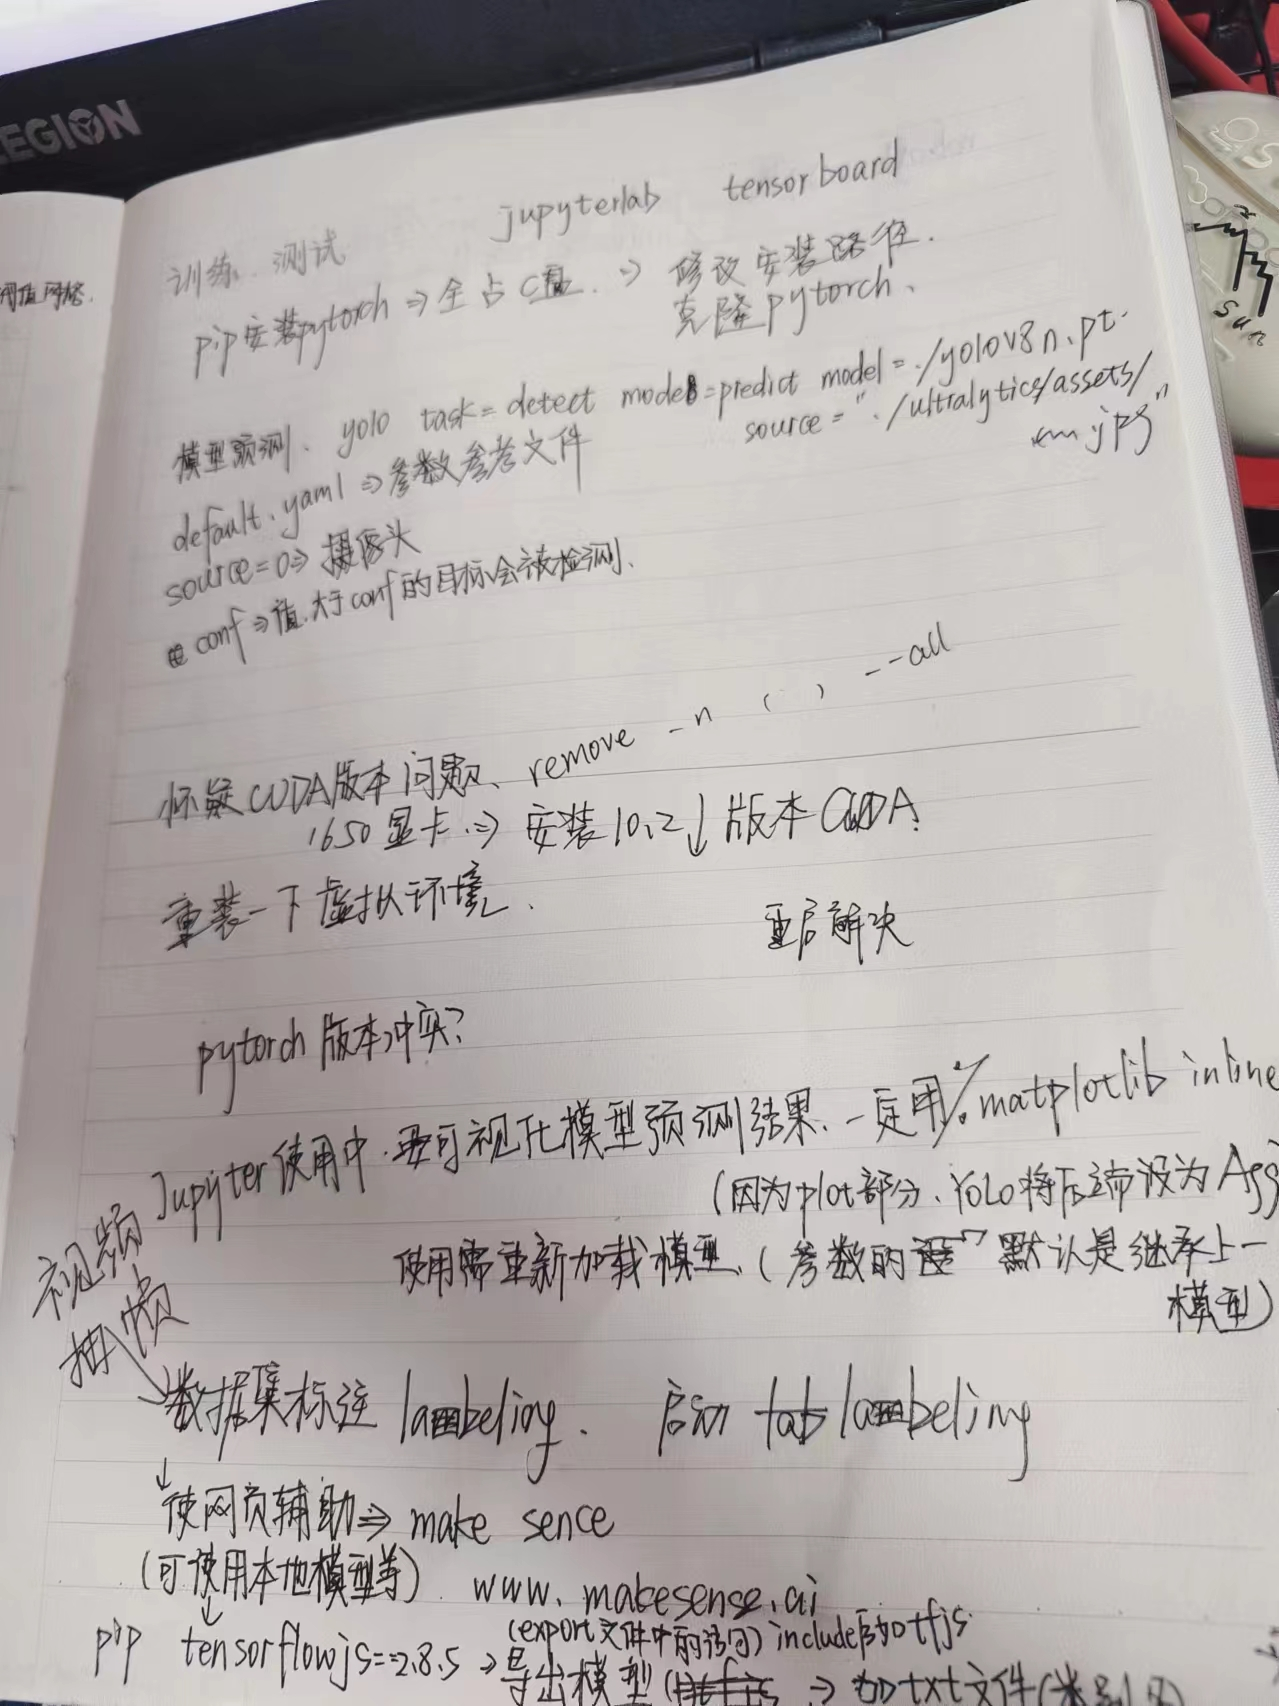 LEGION
jupyterlab tensorboard
训练、测试
pip安装pytorch ⇒ 全占C盘. ⇒ 修改安装路径.
克隆pytorch、
模型预测、yolo task=detect mode=predict model=./yolov8n.pt
source="./ultralytics/assets/
.jpg"
default.yaml ⇒ 参数参考文件
source=0 ⇒ 摄像头
conf ⇒ 值.大于conf的目标会被检测、
怀疑CUDA版本问题、remove -n ( ) --all
1650显卡 ⇒ 安装10.2↓版本CUDA.
重装一下虚拟环境.
重启解决
pytorch版本冲突?
Jupyter使用中.要可视化模型预测结果、一定用%matplotlib inline
(因为plot部分、YOLO将后端设为Agg
使用需重新加载模型、(参数的 默认是继承上一
模型)
视频
抽帧
数据集标注 labeling. 启动 labeling
↓
使网页辅助⇒ make sence
(可使用本地模型等) www.makesense.ai
↓
(export文件中的语句)include
pip tensorflowjs==2.8.5 → 导出模型 → 加txt文件